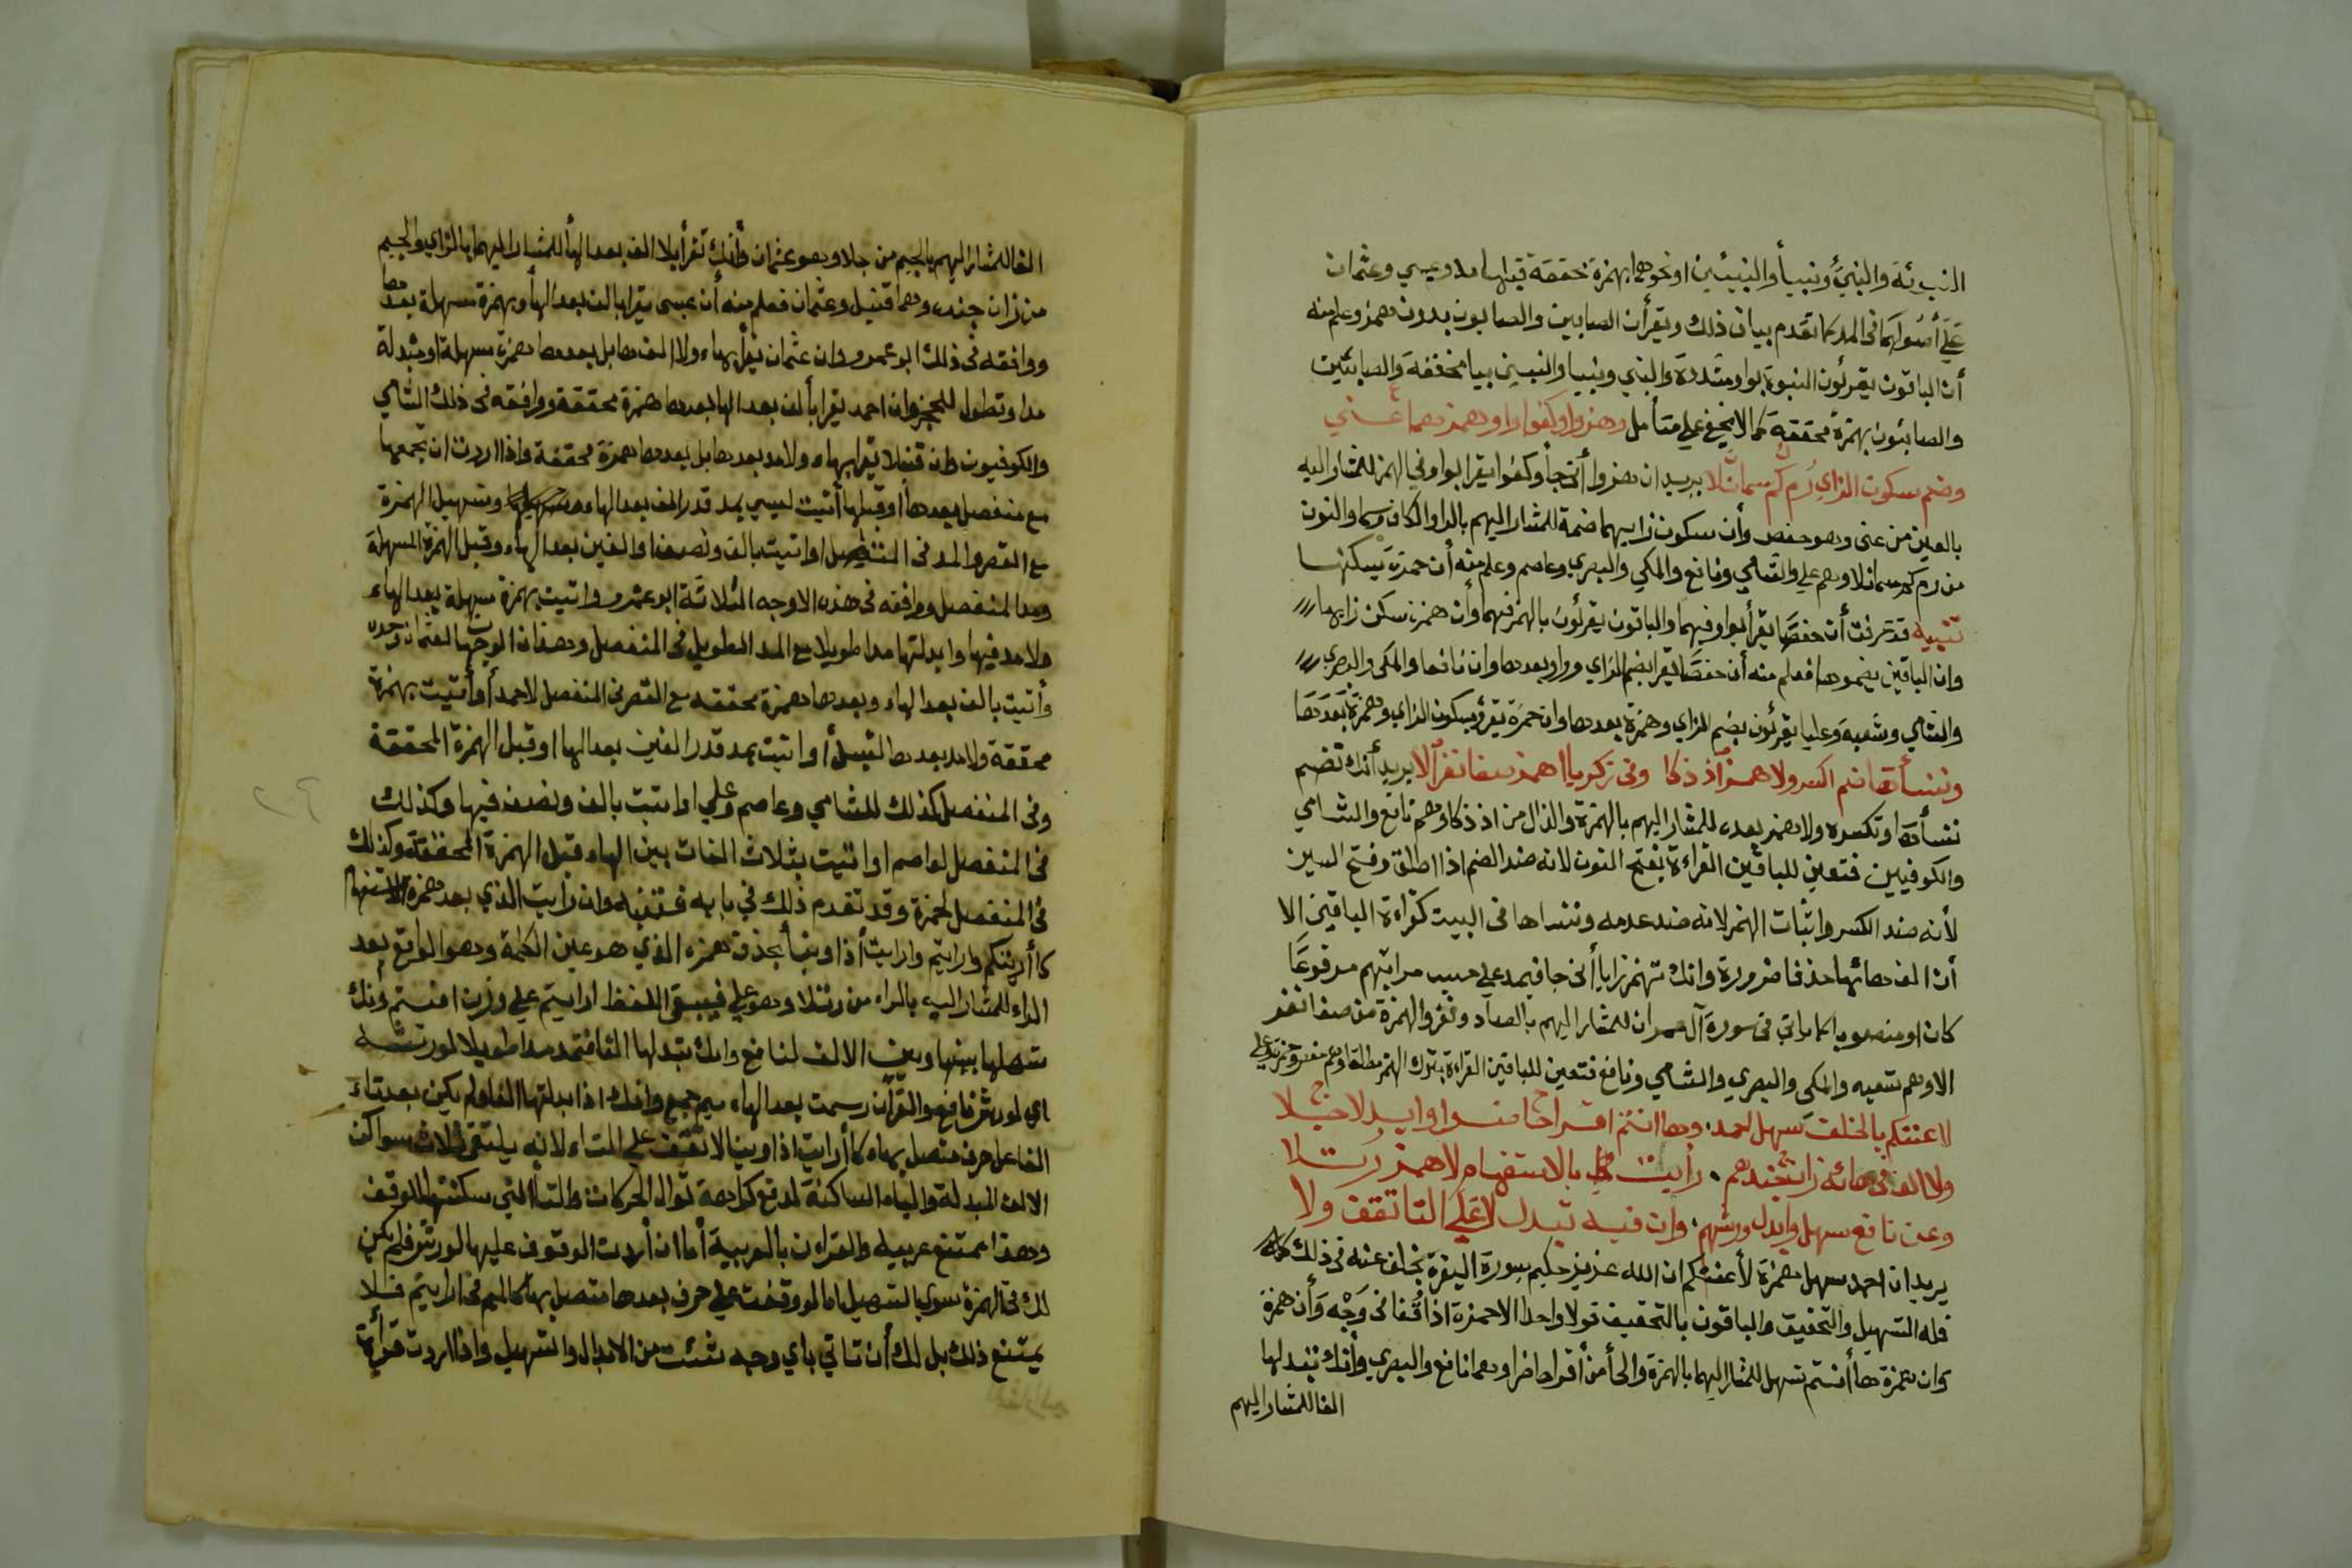 النبوئة والنبئ ونبيأ والنبيئين او نحوهما بهمزة محققة قبلها مد وعيسي وعثمان
علي أصولهما في المد كما تقدم بيان ذلك ويقرأن الصابين والصابون بدون همز وعلم منه
أن الباقون يقرئون النبوة بواو مشددة والنبي ونبيا والنبيين بيا مخففة والصابئين
والصابئون بهمزة محققة كما لا يخفي علي متأمل وهزوا وكفوا واو همزهما عني
وضم سكون الزاي رم كم سمانلا يريد ان هزوا أتي جا وكفوا يقرا بواو في الهمز للمشار اليه
بالعين من عني وهو حفص وأن سكون زايهما ضمة للمشار اليهم بالرا والكاف وسما والنون
من رم كم سمانلا وهم علي والشامي ونافع والمكي والبصري وعاصم وعلم منه أن حمزة يسكنها
تنبيه قد عرفت أن حفصا يقرأ بواو فيهما والباقون يقرئون بالهمز فيهما وأن همزة سكن زايهما
وان الباقين يضموها فعلم منه أن حفصا يقرا بضم الزاي وواو بعدها وان نافعا والمكي والبصري
والشامي وشعبة وعليا يقرئون بضم الزاي وهمزة بعدها وان حمزة يقرؤ بسكون الزاي وهمزة بعدها
وننسأها ضم اكسر ولا همز اذ ذكا وفي زكريا اهمز صفا نفر الا يريد أنك تضم
ننسأها وتكسره ولا همز بعده للمشار اليهم بالهمزة والذال من اذ ذكا وهم نافع والشامي
والكوفيين فتعين للباقين القراءة بفتح النون لانه ضد الضم اذا اطلق وفتح السين
لأنه ضد الكسر واثبات الهمز لانه ضد عدمه وننساها في البيت كقراءة الباقين الا
أن الف هائها حذفا ضرورة وانك تهمز زايا أتي جا فيمد علي حسب مراتبهم مرفوعا
كان او منصوبا كما ياتي في سورة آل عمران للمشار اليهم بالصاد ونفر والهمزة من صفا نفر
الا وهم شعبه والمكي والبصري والشامي ونافع فتعين للباقين القراءة بترك الهمز مطلقا وهم حفص وحمزة وعلي
لاعنتكم بالخلف سهل لحمد وها انتم اقرأ حا ضرا وابدلا جلا
ولا الف في هائه زان جندهم رأيت بالاستفهام لا همز رتلا
وعن نافع سهل وابدل ورشهم وان فيه تبدل لا علي التا تقف ولا
يريد ان احمد سهل همزة لأعنتكم ان الله عزيز حكيم بسورة البقرة بخلف عنه في ذلك
فله التسهيل والتحقيق والباقون بالتحقيق قولا واحدا الا حمزة اذا وقفا في وجه وأن همزة
وان همزة هاأنتم تسهل للمشار اليهما بالهمزة والحا من أقرا حاضرا وهما نافع والبصري وأنك تبدلها
الفا للمشار اليهم
الفا للمشار اليهم بالجيم من جلا وهو عثمان وأنك تقرأ بلا الف بعد الها للمشار اليهما بالزاي والجيم
من زان جنده وهما قنبل وعثمان فعلم منه أن عيسي يقرا بالف بعد الها وبهمزة مسهلة بعدها
ووافقه في ذلك ابو عمرو وان عثمان يقرأ بهاء ولا الف بعدها بل بعدها همزة مسهلة او مبدلة
مدا وتطول للحجز وان احمد يقرا بألف بعد الها بعدها همزة محققة ووافقه في ذلك الشامي
والكوفيون وان قنبلا يقرا بهاء ولا مد بعدها بل بعدها همزة محققة واذا اردت ان تجمعها
مع منفصل بعدها أو قبلها أتيت لعيسي بمد قدر الف بعد الهاء وتسهيل الهمزة
مع القصر والمد في المنفصل او اتيت بالف ونصف او الفين بعد الهاء وقبل الهمزة المسهلة
ومد المنفصل ووافقه في هذه الاوجه الثلاثة ابو عمرو واتيت بهمزة مسهلة بعد الهاء
ولا مد فيها وابدلتها مدا طويلا مع المد الطويل في المنفصل وهذان الوجهان لعثمان وحده
وأتيت بالف بعد الهاء وبعدها همزة محققه مع القصر في المنفصل لاحمد أو أتيت بهمزة
محققة ولا مد بعدها لقنبل أو اتيت بمد قدر الفين بعد الها وقبل الهمزة المحققة
وفي المنفصل كذلك للشامي وعاصم وعلي او اتيت بالف ونصف فيها وكذلك
في المنفصل لعاصم او اتيت بثلاث الفات بين الهاء وقبل الهمزة المحققة وكذلك
في المنفصل لحمزة وقد تقدم ذلك في بابه فتنبه وان رايت الذي بعد همزة الاستفهام
كأريتكم وارايتم وارايت أذا وبنا بحذف همزه الذي هو عين الكلمة وهو الواقع بعد
الراء للمشار اليه بالراء من رتلا وهو علي فيبقي اللفظ اريتم علي وزن افتم وأنك
تسهلها بينها وبين الالف لنافع وانك تبدلها الفا فتمد مدا طويلا لورشه
اي لورش نافع والقرآن رسمت بعد الهاء ميم جمع وانك اذا ابدلتها الفا ولم يكن بعد تاء
الفاعل حرف متصل بهاء كا أرايت اذا وبنا لا تقف علي التاء لانه يلتقي ثلاث سواكن
الالف المبدلة والياء الساكنة لدفع كراهة توالي الحركات والتا التي سكنتها للوقف
وهذا ممتنع عربية والقران بالعربية أما ان أردت الوقوف عليها لورش فلم يكن
لك في الهمزة سوي التسهيل اما لو وقفت علي حرف بعدها متصل بها كالميم في ارايتم فلا
يمتنع ذلك بل لك أن تاتي باي وجه شئت من الابدال والتسهيل واذا اردت قراءة